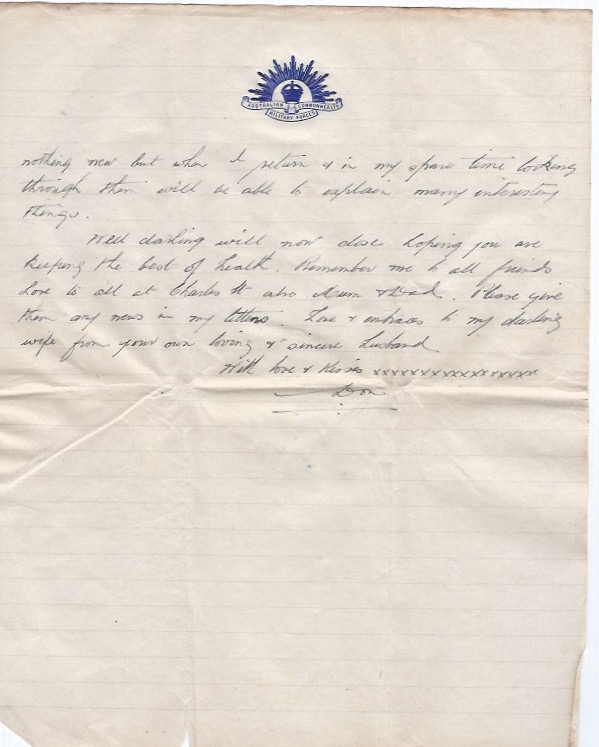 AUSTRALIAN COMMONWEALTH
MILITARY FORCES
nothing new but when I return & in my spare time looking
through them will be able to explain many interesting
things.
Well darling will now close hoping you are
keeping the best of health. Remember me to all friends
Love to all at Charles St also Mum & Dad. Please give
them any news in my letters. Love & embraces to my darling
wife from your own loving & sincere husband
With love & kisses xxxxxxxxxxxxxxxxxx
Don